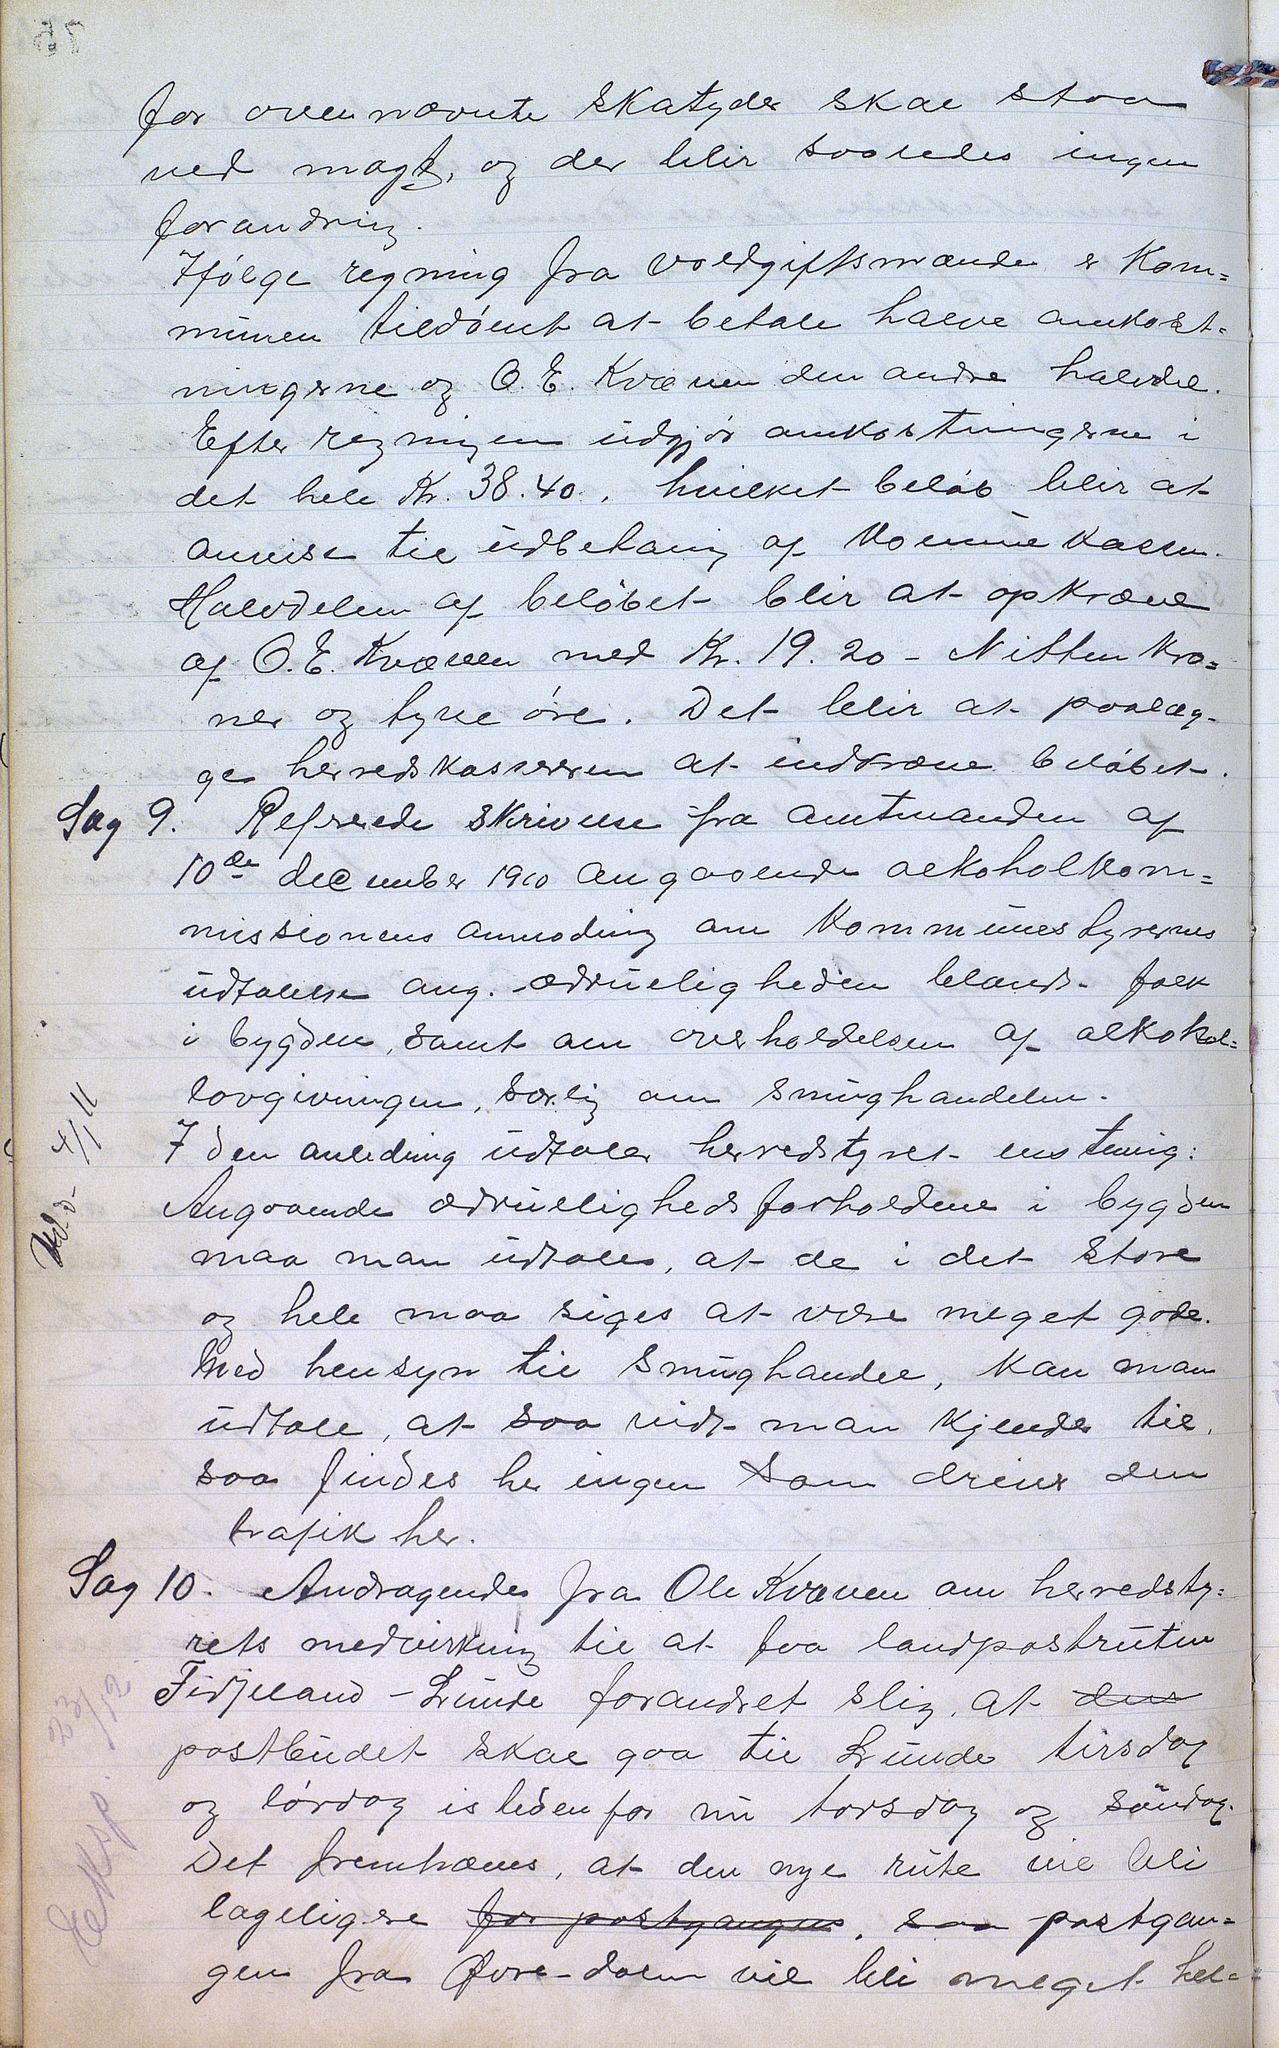 for ovennævnte skatyder skal staa
ved magt, og der blir saaledes ingen
forandring.
Ifølge regning fra voldgiftsmænde er Kom=
munen tildømt at betale halve omkost=
ningerne og O. E. Kvæven den andre halvdel.
Efter regningen udgjør omkostningerne i
det hele Kr. 38.40, hvilket beløb blir at
anvise til udbetaling af Kommunekassen.
Halvdelen af beløbet blir at opkræve
af O. E. Kvæven med Kr. 19.20 - Nitten kro=
ner og tyve øre. Det blir at paalæg-
ge herredskassereren at indkræve beløbet.
Sag 9. Refererede skrivelse fra amtmanden af
10de december 1910 angaaende alkoholkom=
missionens anmodning om Kommunestyrernes
udtalelse ang. ædrueligheden blandt folk
i bygden, samt om overholdelsen af alkohol=
lovgivningen, særlig om smughandelen.
I den anledning udtaler herredstyret enstemig:
Angaaende ædruelighedsforholdene i bygden
maa man udtale, at de i det store
og hele maa siges at være meget gode.
Med hensyn til smughandel, kan man
udtale, at saa vidt man kjender til,
saa findes her ingen som driver den
trafik her.
4/1 11
Sag 10. Andragende fra Ole Kvæven om herredsty=
rets medvirkning til at faa landpostruten
Fidjeland - Lunde forandret slig, at den
postbudet skal gaa til Lunde tirsdag
og lørdag istedenfor nu torsdag og søndag.
Det fremhæves, at den nye rute vil bli
lageligere for postgangen, saa postgan=
gen fra Øvre-dalen vil bli meget hel=
Eksp. 23/12
75